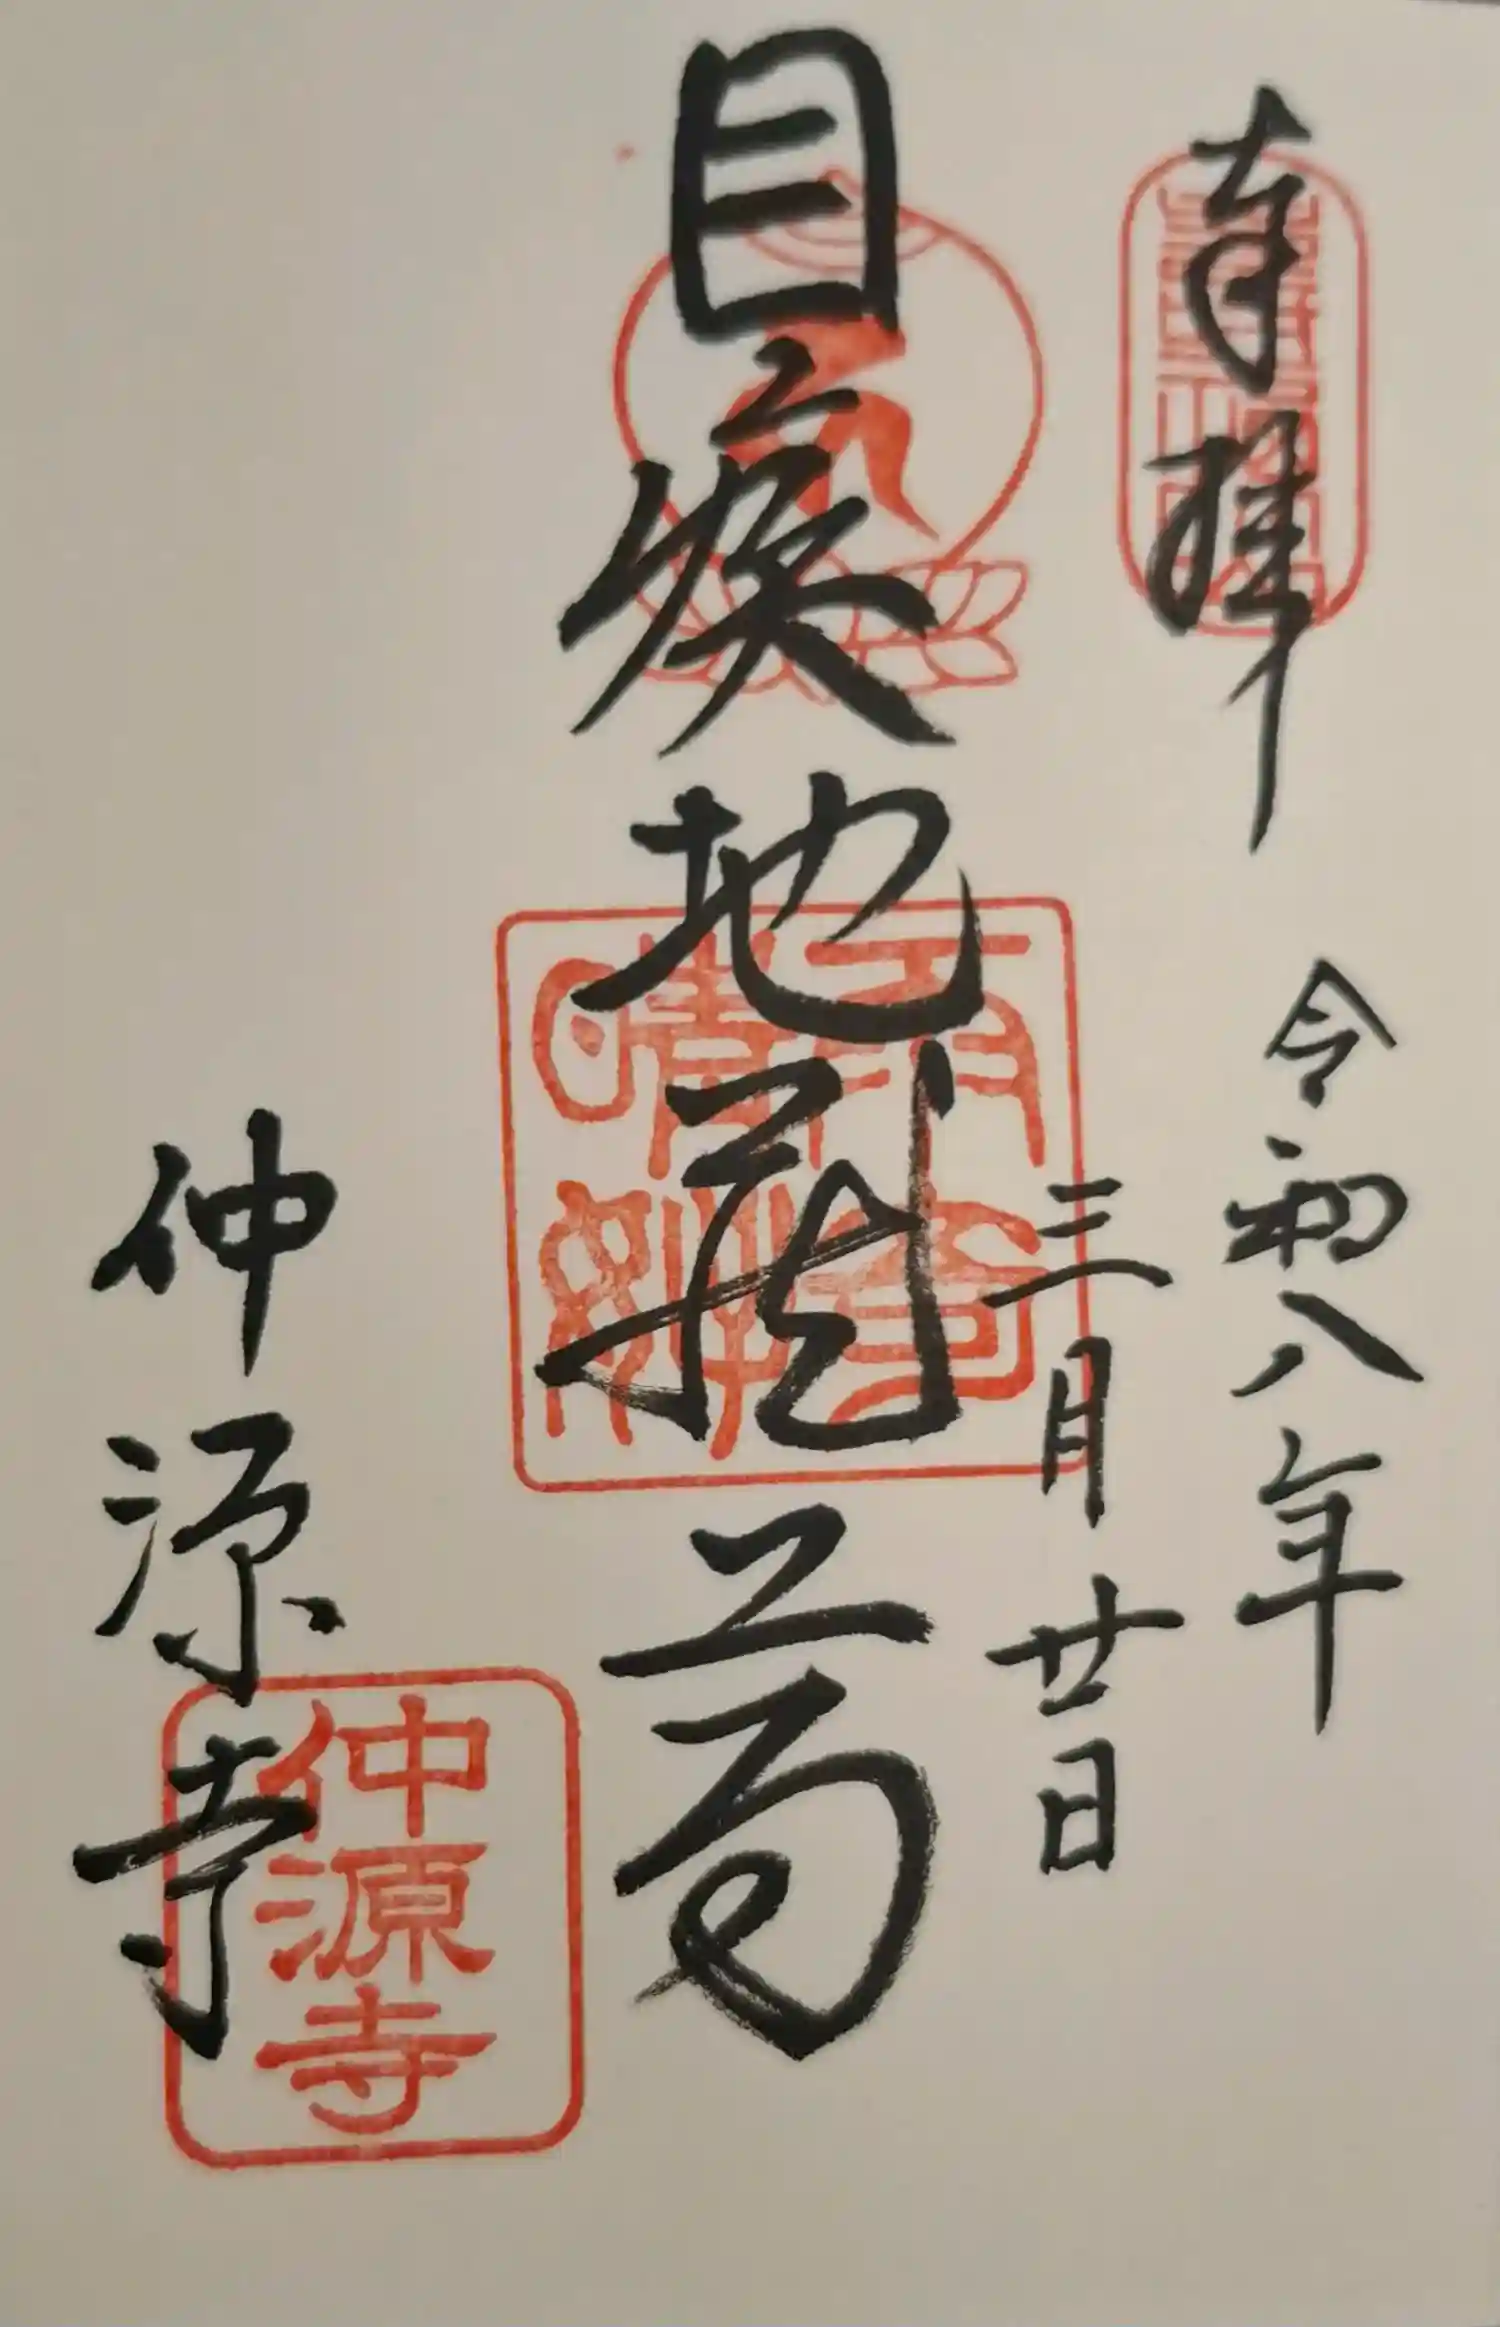 奉拝
令和八年
三月廿日
目疾地蔵尊
雨奇晴好
仲源寺
仲源寺